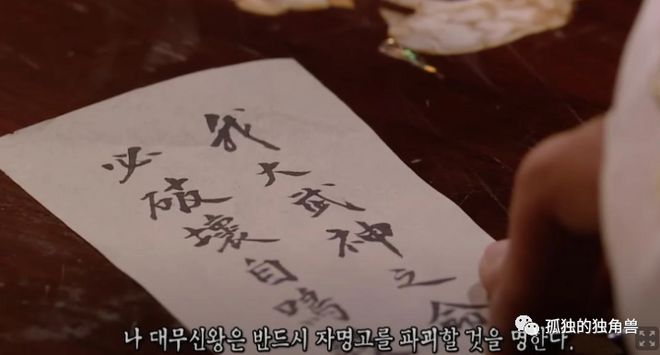 我大武神之命
必破壞自鳴
나 대무신왕은 반드시 자명고를 파괴할 것을 명한다.
孤独的独角兽